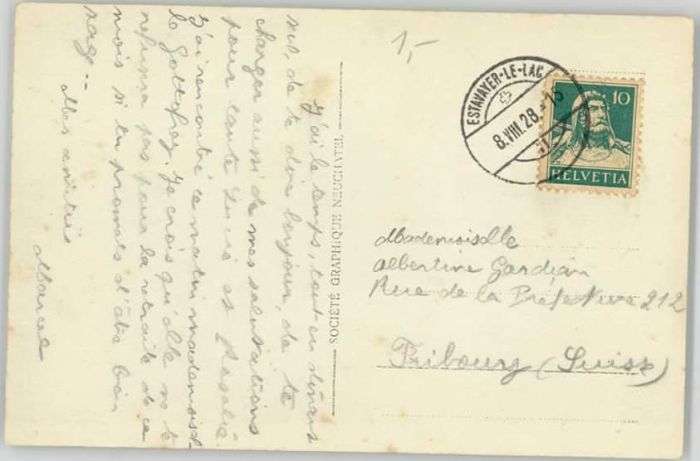 J'ai le temps, tout en dînant
de te dire bonjour, de te
charger aussi de mes salutations
pour tante Lucie et Rosalie
J'ai rencontré ce matin mademoisel-
le Gottofrey. Je crois qu'elle ne te
refusera pas pour la retraite de ce
mois si tu promets d'être bien
sage..
Mes amitiés
Marcel
SOCIÉTÉ GRAPHIQUE NEUCHATEL
1,-
ESTAVAYER-LE-LAC
8.VIII.28.
10
HELVETIA
Mademoiselle
Albertine Gardian
Rue de la Préfecture 212
Fribourg (Suisse)